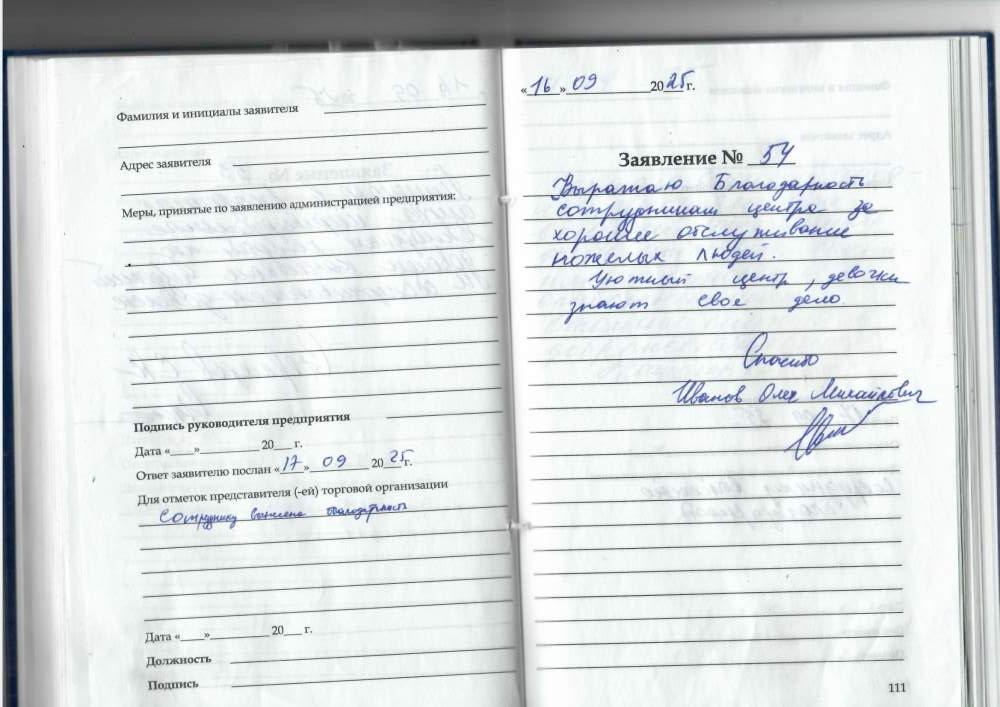 Фамилия и инициалы заявителя
Адрес заявителя
Меры, принятые по заявлению администрацией предприятия:
Подпись руководителя предприятия
Дата «____»__________ 20___ г.
Ответ заявителю послан «17» 09 2025г.
Для отметок представителя (-ей) торговой организации
Сотруднику вынесена благодарность
Дата «____»__________ 20___ г.
Должность
Подпись
«16» 09 2025г.
Заявление № 54
Выражаю Благодарность
сотрудникам центра за
хорошее отслуживание
пожелых людей.
Уютный центр, девочки
знают свое дело.
Спасибо
Иванов Олег Михайлович
111